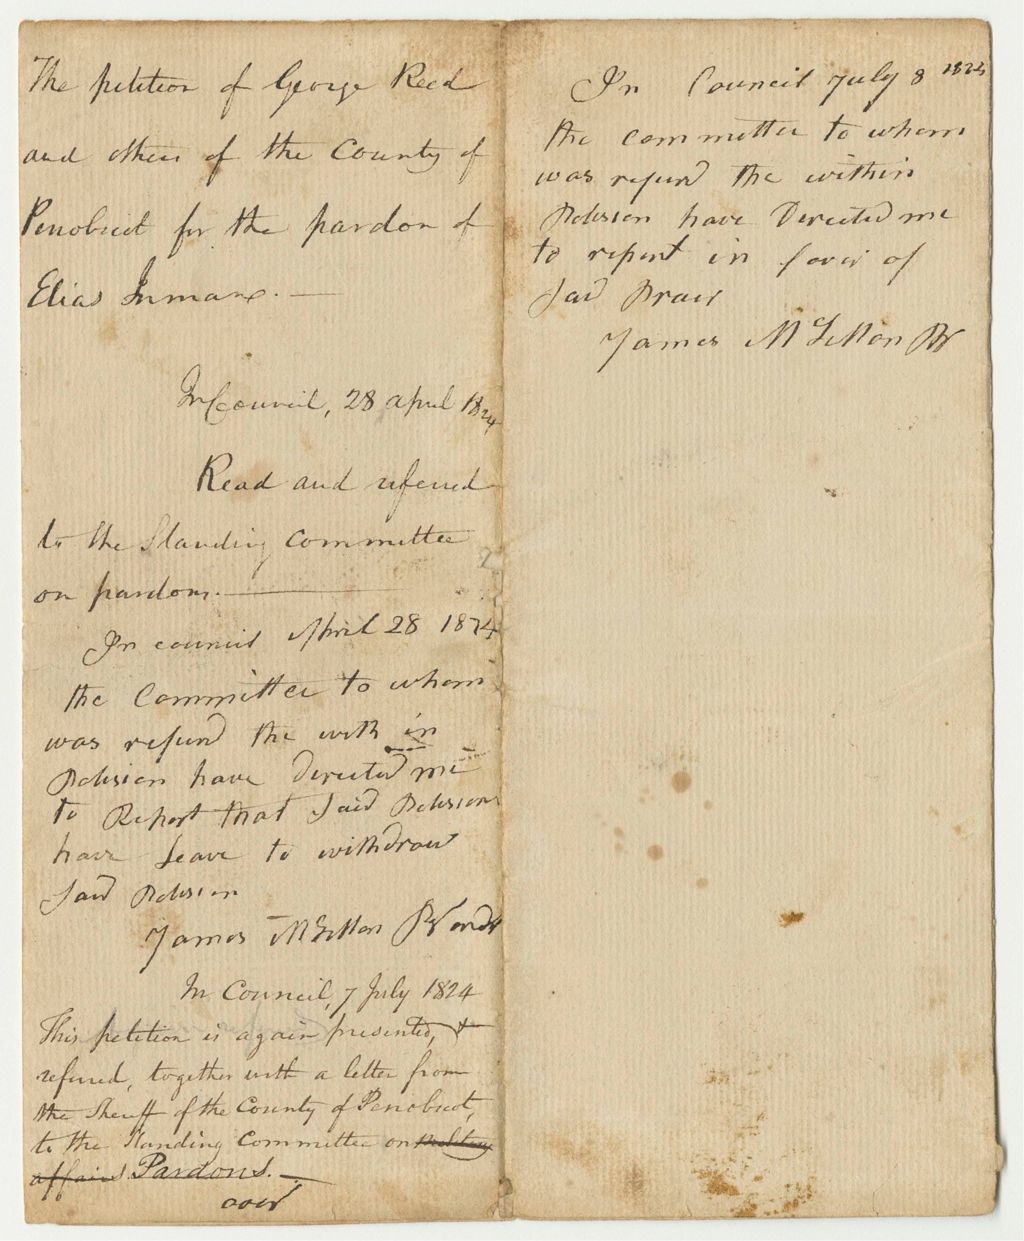 The petition of George Reed
and others of the County of
Penobscot for the pardon of
Elias Inman. —
In Council, 28 April 1824
Read and referred
to the Standing Committee
on pardons. —
In council April 28 1824
the Committee to whom
was referd the with in
Petision have Directed me
to Report that Said Petisions
have Leave to withdraw
Said Petision
James
In Council, 7 July 1824
This petition is again presented, &
referred, together with a letter from
the Sheriff of the County of Penobscot,
to the Standing Committee on military
affairs Pardons. —
over
In Council July 8 1824
the committee to whom
was referd the within
Petision have Directed me
to report in favor of
Said
James